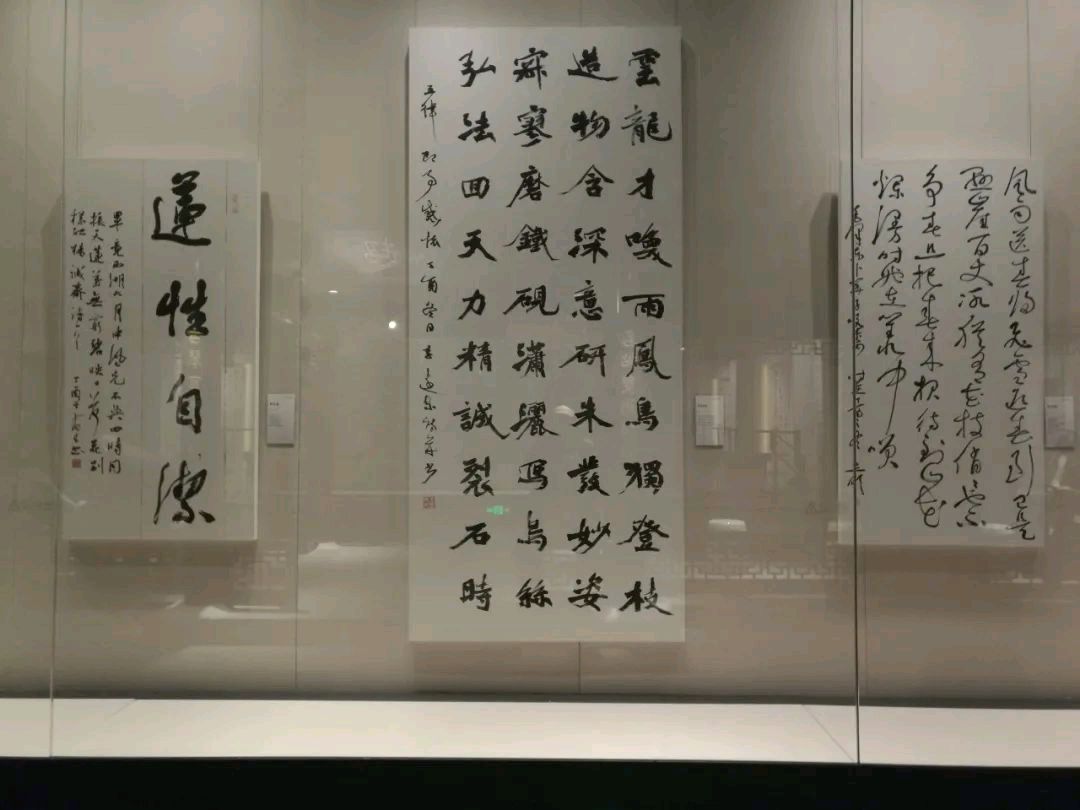 风雨送春归飞雪迎春到已是
悬崖百丈冰犹有花枝俏俏也不
争春只把春来报待到山花
烂漫时她在丛中笑
雲龍才喚雨鳳鳥獨登枝
造物含深意研朱發妙姿
寂寥磨鐵硯瀟灑寫烏絲
弘法回天力精誠裂石時
五律 即事感怀 丁酉冬日
蓮性自潔
畢竟西湖六月中風光不與四時同
接天蓮葉無窮碧映日荷花別
樣紅 楊誠齋詩一首 丁酉